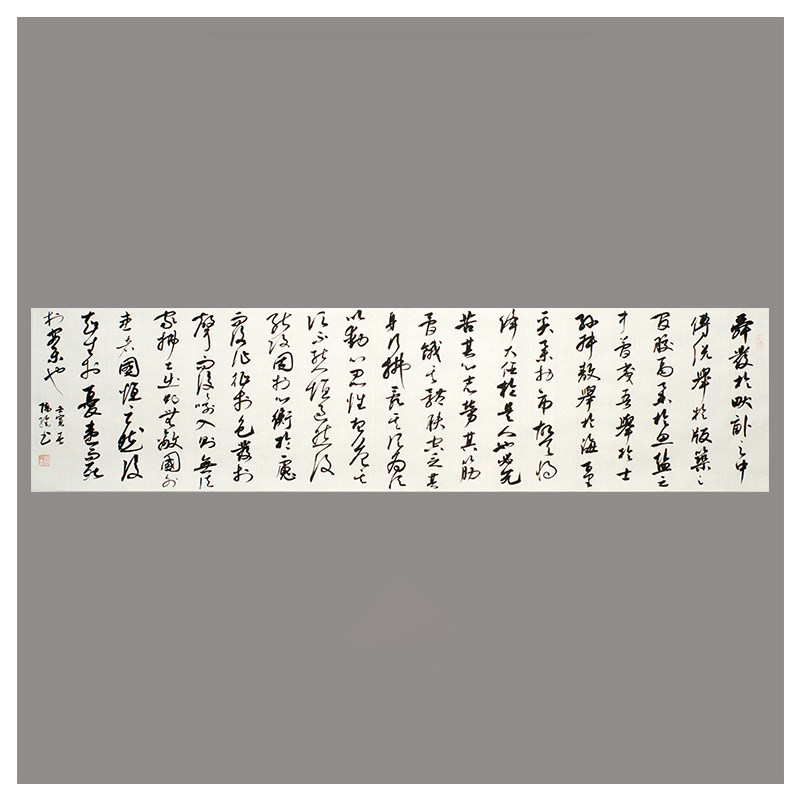 舜發於畎畝之中
傅說舉於版築之
間膠鬲舉於魚鹽之
中管夷吾舉於士
孫叔敖舉於海百里
奚舉於市故天將
降大任於是人也必先
苦其心志勞其筋
骨餓其體膚空乏其
身行拂亂其所為所
以動心忍性曾益其
所不能恒過然後
能改困於心衡於慮
而後作征於色發於
聲而後喻入則無法
家拂士出則無敵國外
患者國恒亡然後
知生於憂患而死
於安樂也
壬寅夏
書